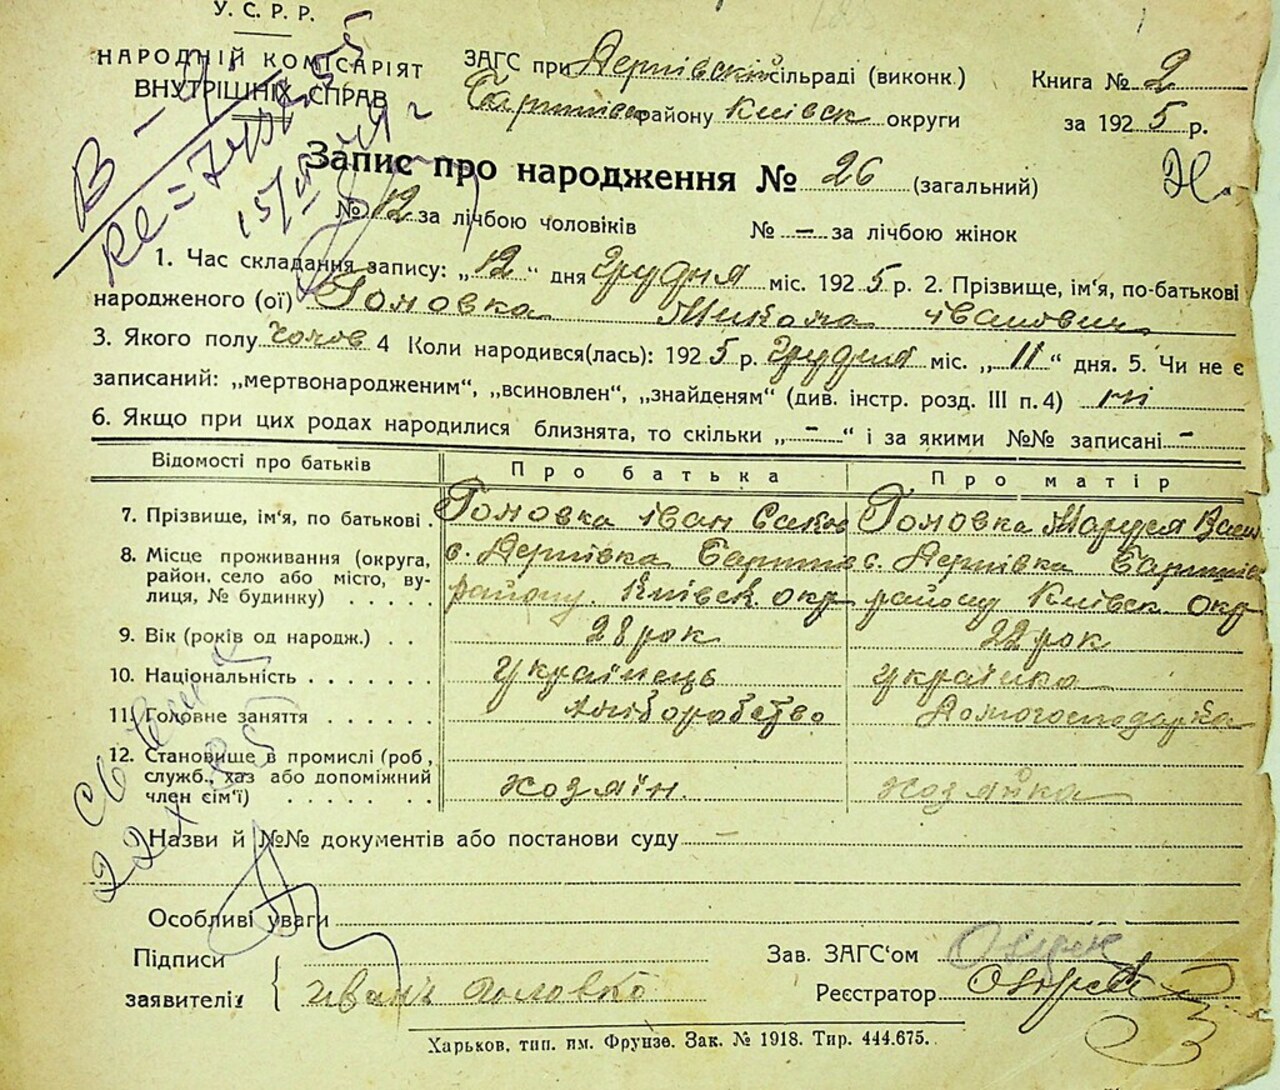 У.С.Р.Р.
НАРОДНІЙ КОМІСАРІЯТ
ВНУТРІШНІХ СПРАВ
ЗАГС при Дернівскій сільраді (виконк.)
Баришівск району Київск округи
Книга № 2
за 1925 р.
Запис про народження № 26 (загальний)
№ 12 за лічбою чоловіків № – за лічбою жінок
1. Час складання запису: „12“ дня Грудня міс. 1925 р. 2. Прізвище, ім'я, по-батькові
народженого (ої) Головка Микола Іванович
3. Якого полу чолов 4 Коли народився(лась): 1925 р. Грудня міс. „11“ дня. 5. Чи не є
записаний: „мертвонародженим“, „всиновлен“, „знайденям“ (див. інстр. розд. III п. 4) ні
6. Якщо при цих родах народилися близнята, то скільки „–“ і за якими №№ записані –
Відомості про батьків Про батька Про матір
7. Прізвище, ім'я, по батькові . Головка Іван Головка Маруся Васил
8. Місце проживання (округа, район, село або місто, вулиця, № будинку) . . . . .
с. Дернівка Баришів району Київск. окр
с. Дернівка Баришів району Київск. окр
9. Вік (років од народж.) . . 28 рок 22 рок
10. Національність . . . . . . . українець українка
11. Головне заняття . . . . . . хліборобство Домогосподарка
12. Становище в промислі (роб,
служб., хаз або допоміжний
член сім'ї) . . . . . . . . хозяїн. хозяйка
Назви й №№ документів або постанови суду –
Особливі уваги
Підписи
заявителів: Иванъ Головко
Зав. ЗАГС'ом
Реєстратор
Харьков, тип. им. Фрунзе. Зак. № 1918. Тир. 444.675.